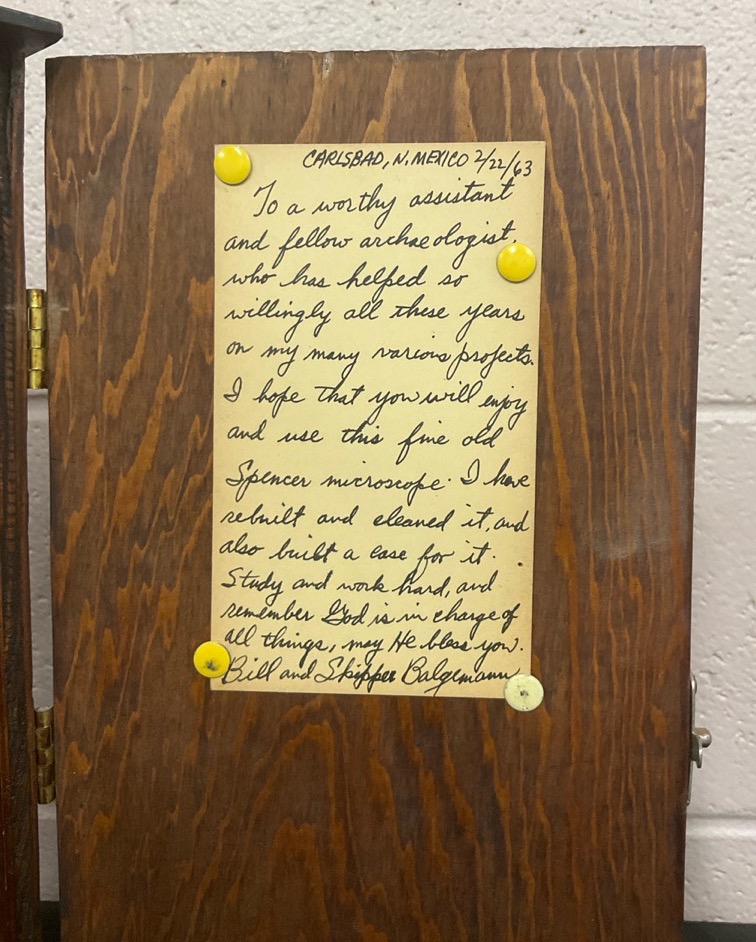 CARLSBAD, N. MEXICO 2/22/63
To a worthy assistant
and fellow archaeologist,
who has helped so
willingly all these years
on my many various projects.
I hope that you will enjoy
and use this fine old
Spencer microscope. I have
rebuilt and cleaned it, and
also built a case for it.
Study and work hard, and
remember God is in charge of
all things, may He bless you.
Bill and Skipper Balgemann